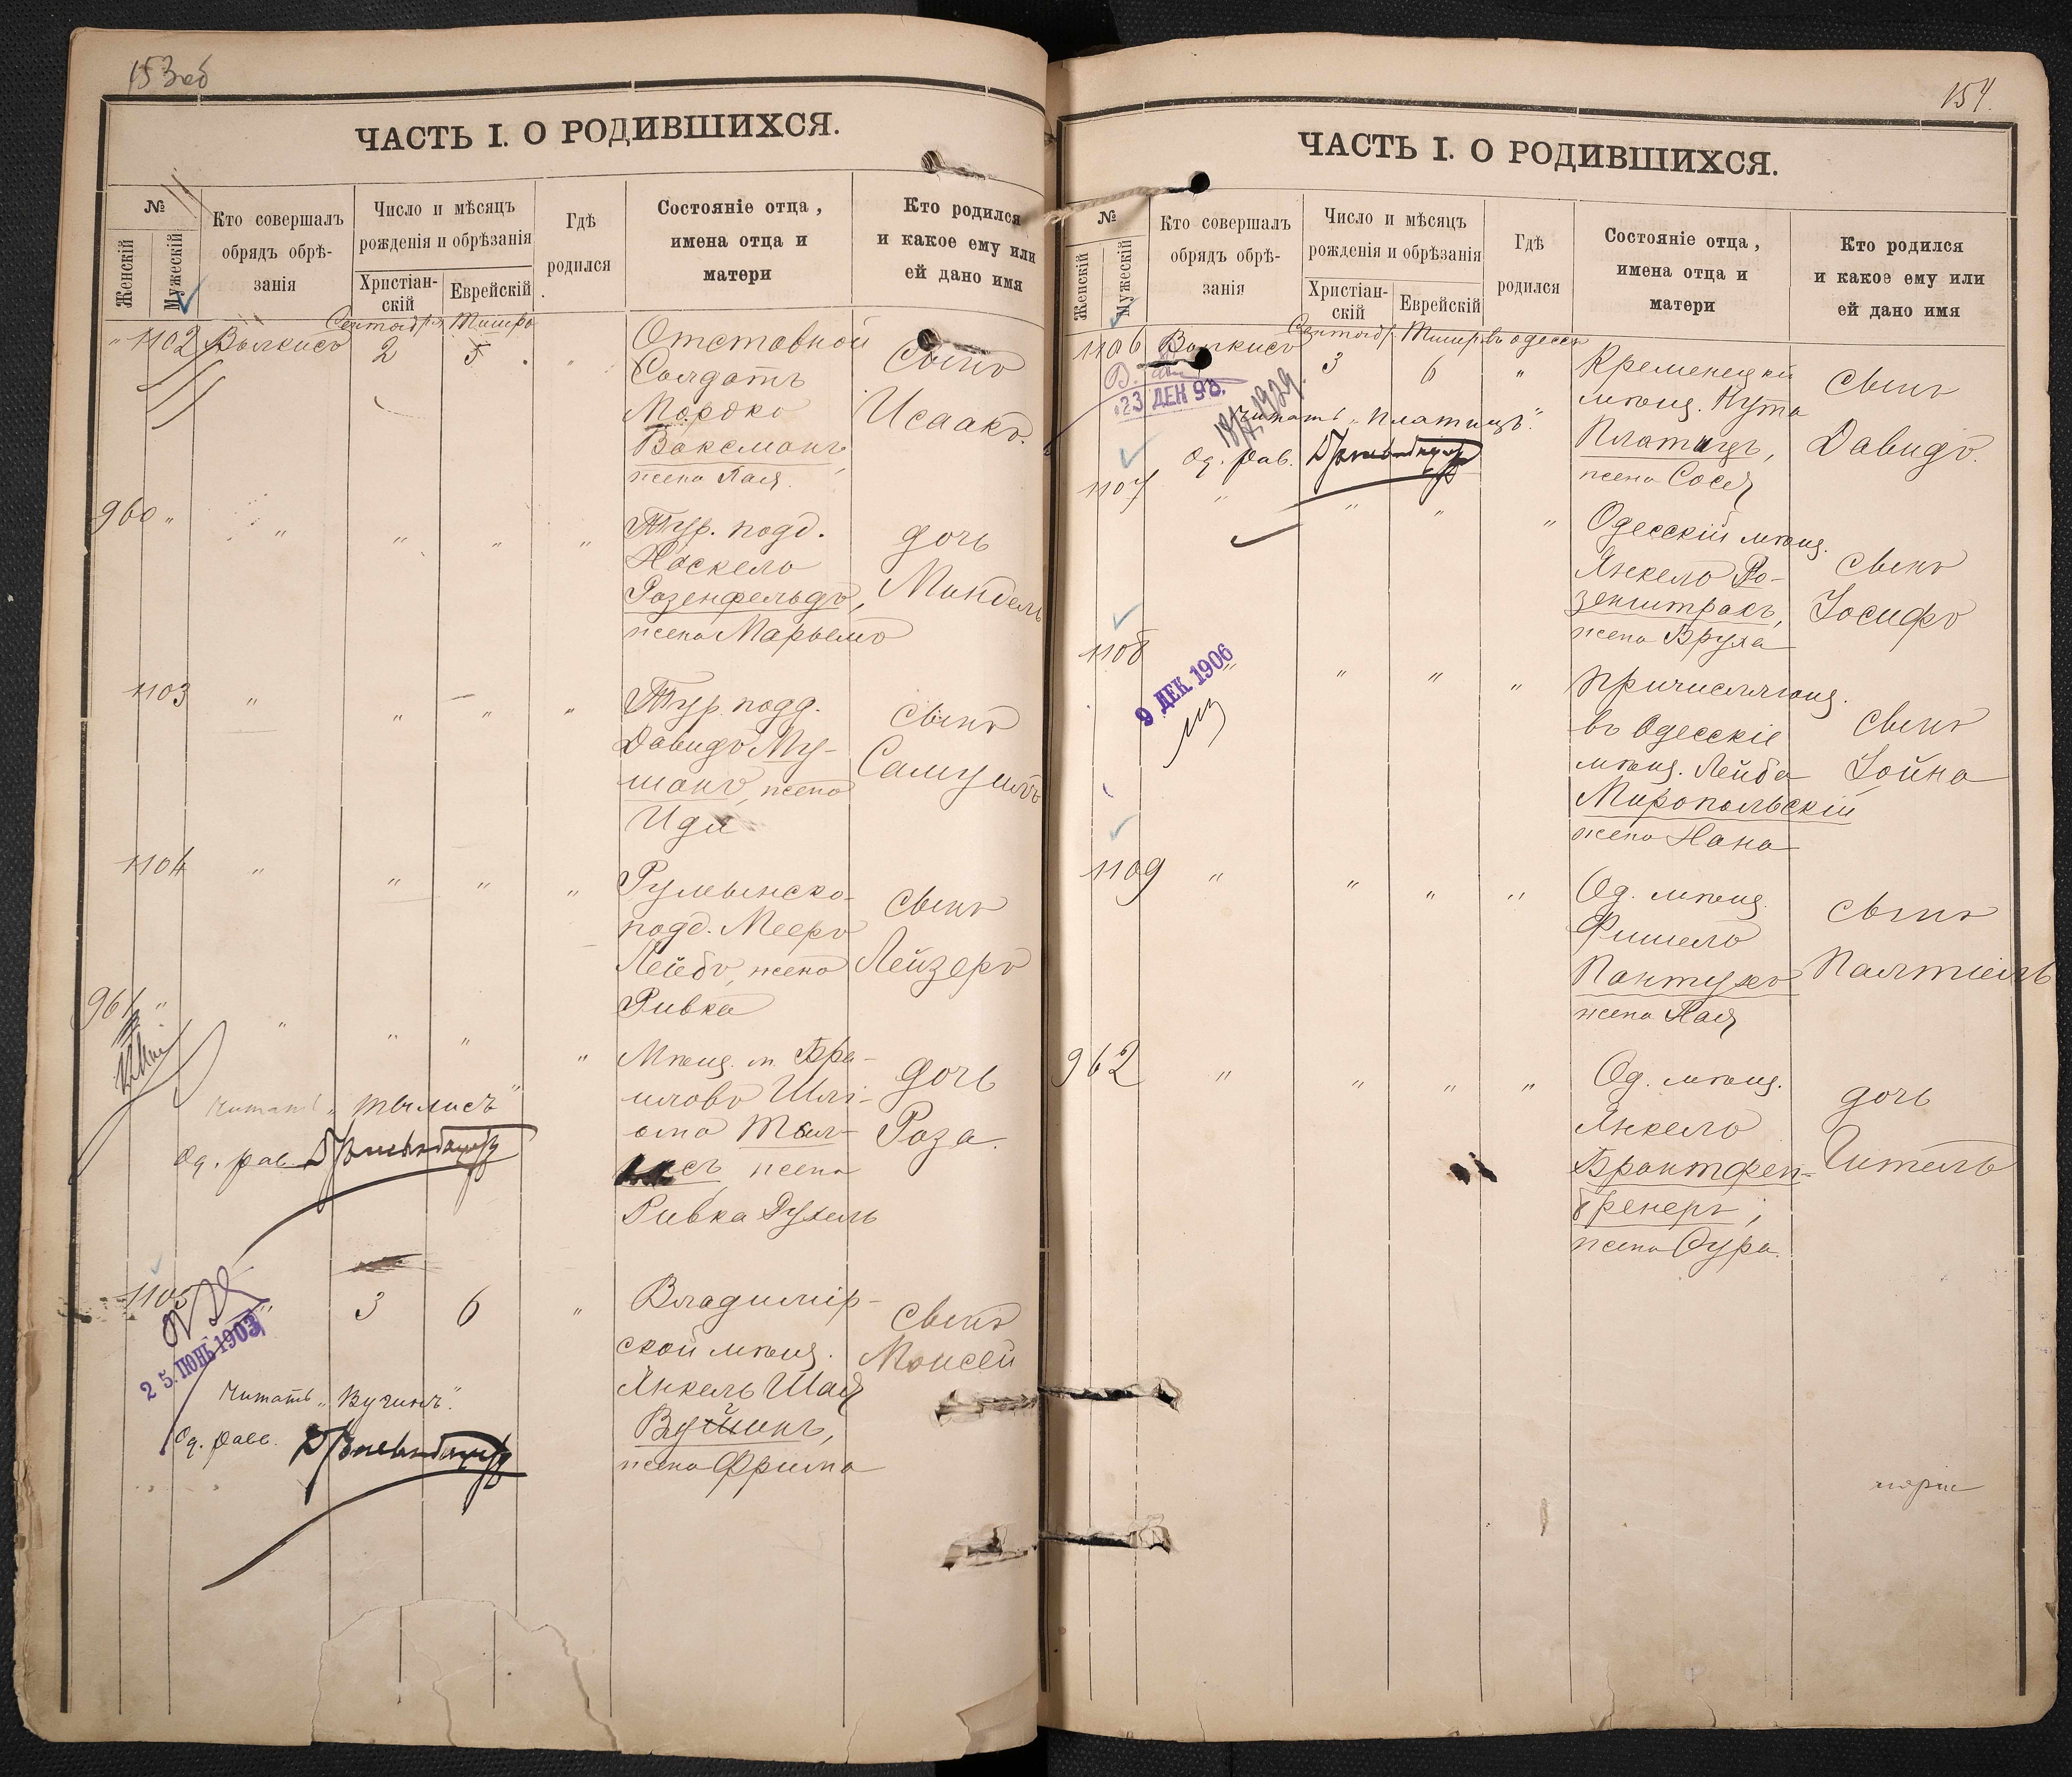 153 об
ЧАСТЬ I. О РОДИВШИХСЯ.
№
Женскій
Мужескій
Кто совершалъ
обрядъ обрѣ-
занія
Число и мѣсяцъ
рожденія и обрѣзанія
Христіан-
скій
Еврейскій
Гдѣ
родился
Состояніе отца,
имена отца и
матери
Кто родился
и какое ему или
ей дано имя
" 1102
Сентябр. Тишри
2 5 "
Отставной
Солдатъ
Мордко
Ваксманъ,
жена Хая.
Сынъ
Исаакъ.
960 " " " " "
Тур. подд.
Хаскель
Розенфельдъ,
жена Марьемъ
дочь
Миндель
1103 " " " "
Тур. подд.
Давидъ Му-
шанъ, жена
Иди
сынъ
Самуилъ
1104 " " " "
Румынско-
подд. Мееръ
Лейбъ, жена
Ривка
сынъ
Лейзеръ
961 " " " " "
Мѣщ. м. Бра-
илово Шлі-
ома Тыл-
исъ, жена
Ривка Рухель
дочь
Роза.
Читать "Тылисъ"
Од. рав.
1105 " 3 6 "
25. ІЮНЬ 1903
Владимір-
ской мѣщ.
Янкель Шая
жена Фрима
сынъ
Моисей
Читать "Вугинъ".
Од. рав.
154.
ЧАСТЬ I. О РОДИВШИХСЯ.
№
Женскій
Мужескій
Кто совершалъ
обрядъ обрѣ-
занія
Число и мѣсяцъ
рожденія и обрѣзанія
Христіан-
скій
Еврейскій
Гдѣ
родился
Состояніе отца,
имена отца и
матери
Кто родился
и какое ему или
ей дано имя
1106
Сентябр. Тишри въ Одессѣ
3 6 "
23 ДЕК 98.
Кременецкій
мѣщ. Нута
Платицъ,
жена Сося
сынъ
Давидъ.
Читать "Платицъ".
Од. рав.
1107 " " " "
Одесскій мѣщ.
Янкель Ро-
зенштрахъ,
жена Бруха
сынъ
Іосифъ
1108 " " " "
9 ДЕК 1906
Причисляющ.
въ Одесскіе
мѣщ. Лейба
Миропольскій
жена Хана
сынъ
Іойна
1109 " " " "
Од. мѣщ.
Фишель
Пантухъ
жена Хая
сынъ
Палтіель
962 " " " "
Од. мѣщ.
Янкель
Брантфен-
бренеръ,
жена Сура.
дочь
Гитель